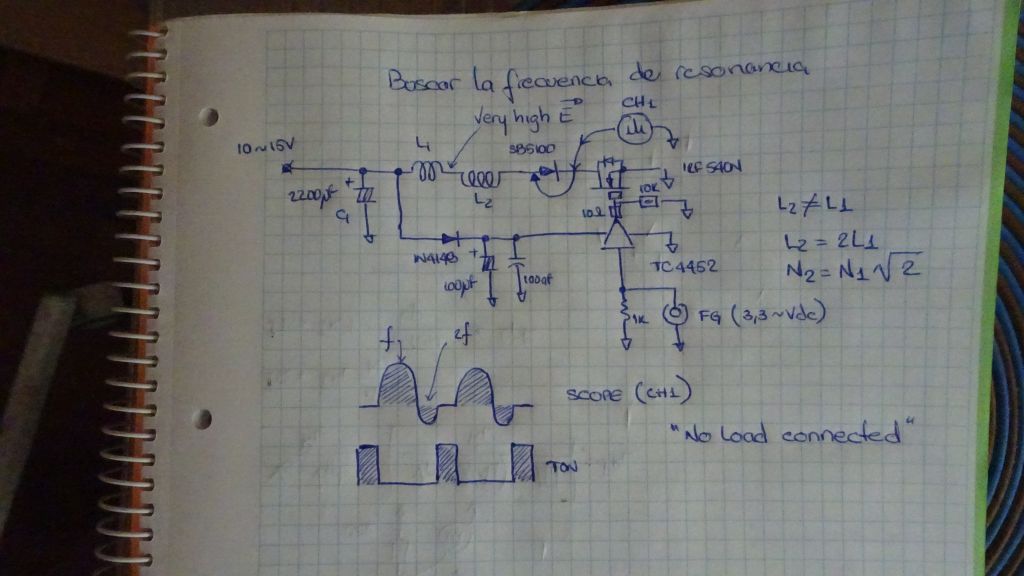 Buscar la frecuencia de resonancia
Very high E
CH1
10~15V
L1
SB5100
IRF540N
2200µf
C1
L2
10K
10Ω
L2 ≠ L1
L2 = 2L1
N2 = N1 √2
1N4148
100µf
100nf
TC4452
1K
FG (3,3~Vdc)
f
2f
SCOPE (CH1)
"No Load connected"
TON